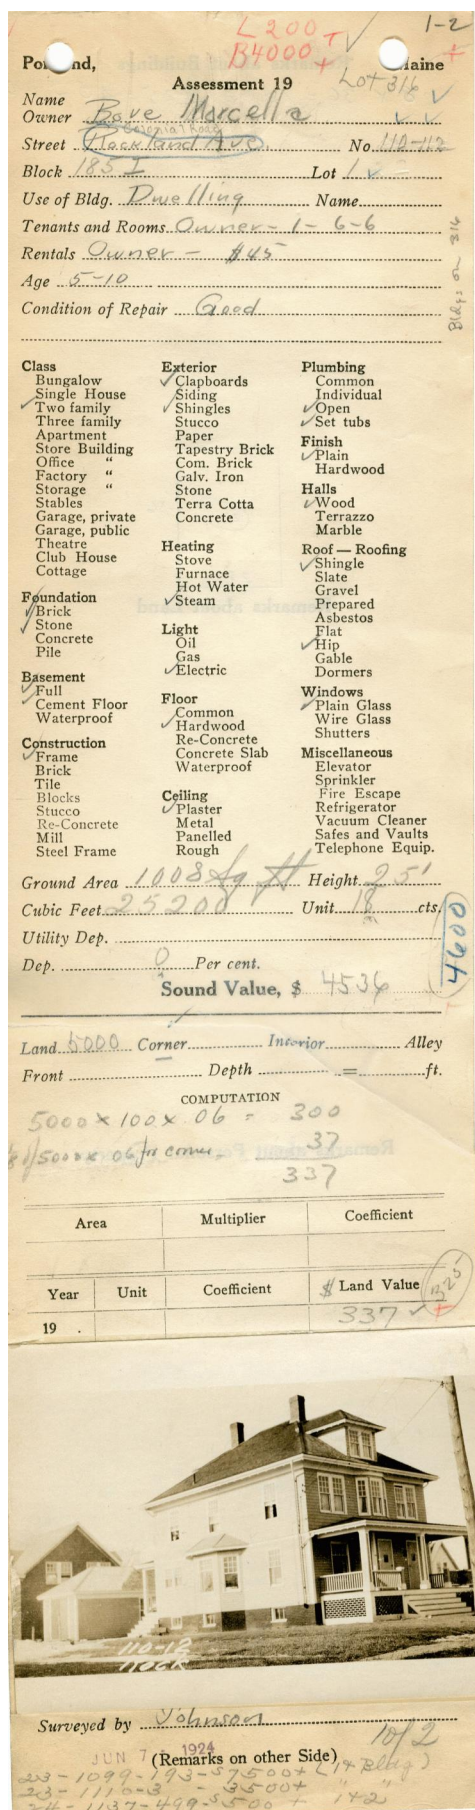 L 200 +
B 4000 +
1-2
Portland, Maine
Assessment 19
Lot 316
Name
Owner Bove Marcella
Colonial Road
Street Flockland Ave. No. 112-112
Block 185 I Lot 1
Use of Bldg. Dwelling Name
Tenants and Rooms Owner - 1 - 6-6
Rentals Owner - $45
Age 5-10
Condition of Repair Good
Bldgs on 316
Class
Bungalow
Single House
✓ Two family
Three family
Apartment
Store Building
Office "
Factory "
Storage "
Stables
Garage, private
Garage, public
Theatre
Club House
Cottage
Foundation
✓ Brick
✓ Stone
Concrete
Pile
Basement
✓ Full
✓ Cement Floor
Waterproof
Construction
✓ Frame
Brick
Tile
Blocks
Stucco
Re-Concrete
Mill
Steel Frame
Exterior
✓ Clapboards
Siding
✓ Shingles
Stucco
Paper
Tapestry Brick
Com. Brick
Galv. Iron
Stone
Terra Cotta
Concrete
Heating
Stove
Furnace
Hot Water
✓ Steam
Light
Oil
Gas
✓ Electric
Floor
✓ Common
✓ Hardwood
Re-Concrete
Concrete Slab
Waterproof
Ceiling
✓ Plaster
Metal
Panelled
Rough
Plumbing
Common
Individual
✓ Open
✓ Set tubs
Finish
✓ Plain
Hardwood
Halls
✓ Wood
Terrazzo
Marble
Roof — Roofing
✓ Shingle
Slate
Gravel
Prepared
Asbestos
Flat
✓ Hip
Gable
Dormers
Windows
✓ Plain Glass
Wire Glass
Shutters
Miscellaneous
Elevator
Sprinkler
Fire Escape
Refrigerator
Vacuum Cleaner
Safes and Vaults
Telephone Equip.
Ground Area 1008 sq ft Height 25'
Cubic Feet 25200 Unit 18 cts.
Utility Dep.
4600
Dep. 0 Per cent.
Sound Value, $ 4536
Land 5000 Corner Interior Alley
Front Depth = ft.
COMPUTATION
5000 x 100 x .06 = 300
5000 x .06 for corner 37
337
Area Multiplier Coefficient
Year Unit Coefficient $ Land Value
325
19 . 337 ✓ +
110-12
Surveyed by Johnson
1 of 2
JUN 7 - 1924
(Remarks on other Side)
23-1099-193-$7500+ (1+Bldg)
23-1110-3 - 3500+ " 1+2"
24-1137-499-$500 +